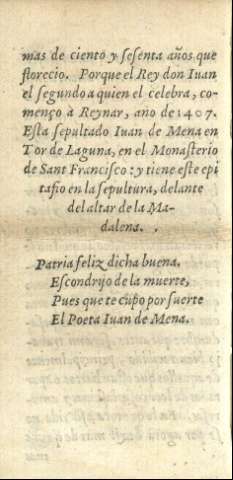 mas de ciento y sesenta años que
florecio. Porque el Rey don Iuan
el segundo a quien el celebra, co-
menço à Reynar, año de 1407.
Esta sepultado Iuan de Mena en
Tor de Laguna, en el Monasterio
de Sant Francisco: y tiene este epi
tafio en la sepultura, delante
del altar de la Ma-
dalena.
Patria feliz dicha buena.
Escondrijo de la muerte,
Pues que te cupo por suerte
El Poeta Iuan de Mena.